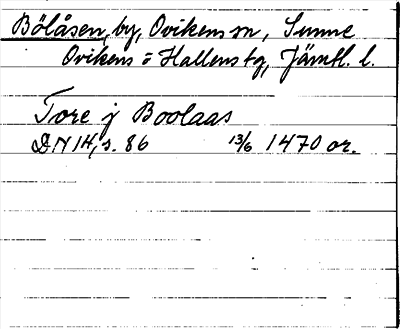 Bölåsen, by, Ovikens sn, Sunne
Ovikens o Hallens tg, Jämtl. l.
Tore j Boolaas
DN 14, s. 86 13/6 1470 or.